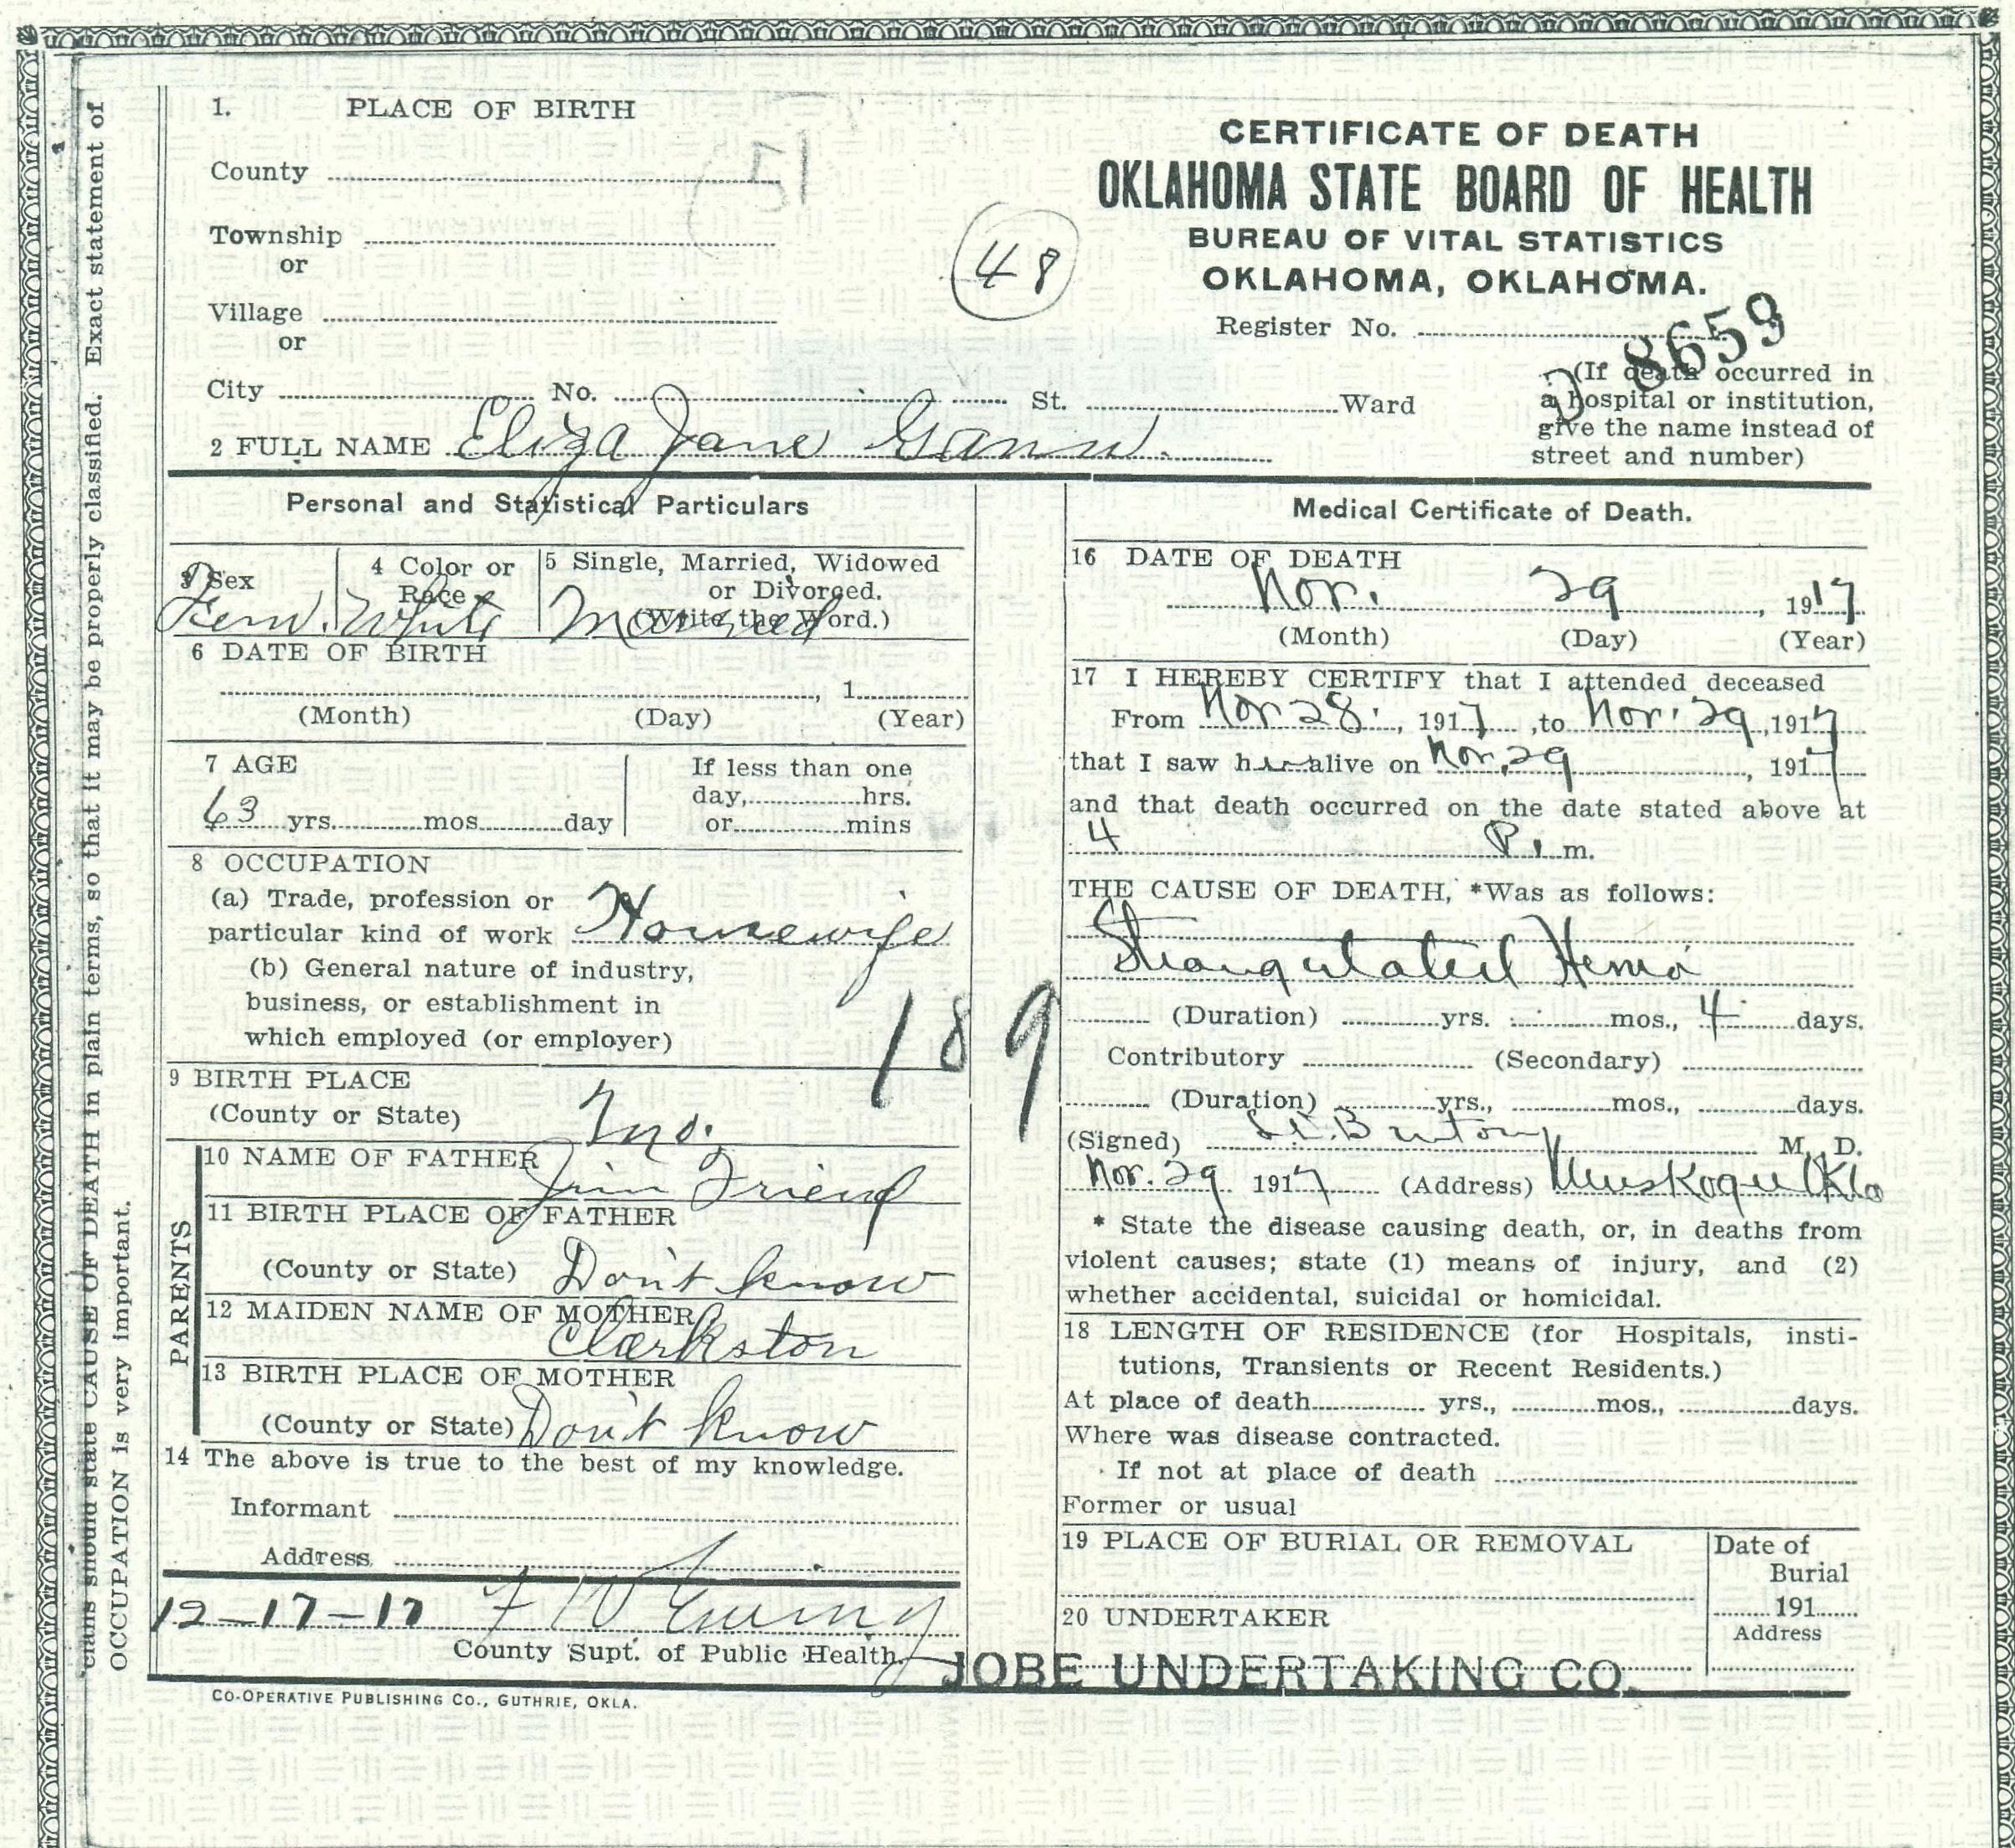 1. PLACE OF BIRTH
51
County
Township
or
Village
or
City No. St. Ward
2 FULL NAME Eliza Jane Gann
48
CERTIFICATE OF DEATH
OKLAHOMA STATE BOARD OF HEALTH
BUREAU OF VITAL STATISTICS
OKLAHOMA, OKLAHOMA.
Register No.
D 8659
(If death occurred in
a hospital or institution,
give the name instead of
street and number)
cians should state CAUSE OF DEATH in plain terms, so that it may be properly classified. Exact statement of
OCCUPATION is very important.
Personal and Statistical Particulars
3 Sex
Fem.
4 Color or
Race
White
5 Single, Married, Widowed
or Divorced.
(Write the Word.)
Married
6 DATE OF BIRTH
, 1
(Month) (Day) (Year)
7 AGE
63 yrs. mos. day
If less than one
day, hrs.
or mins
8 OCCUPATION
(a) Trade, profession or
particular kind of work Housewife
(b) General nature of industry,
business, or establishment in
which employed (or employer)
189
9 BIRTH PLACE
(County or State) Mo.
PARENTS
10 NAME OF FATHER
Jim Friend
11 BIRTH PLACE OF FATHER
(County or State) Don't know
12 MAIDEN NAME OF MOTHER
Clarkston
13 BIRTH PLACE OF MOTHER
(County or State) Don't know
14 The above is true to the best of my knowledge.
Informant
Address
12-17-17 F W Ewing
County Supt. of Public Health.
CO-OPERATIVE PUBLISHING CO., GUTHRIE, OKLA.
Medical Certificate of Death.
16 DATE OF DEATH
Nov. 29, 1917
(Month) (Day) (Year)
17 I HEREBY CERTIFY that I attended deceased
From Nov 28, 1917, to Nov. 29, 1917
that I saw her alive on Nov. 29, 1917
and that death occurred on the date stated above at
4 P. m.
THE CAUSE OF DEATH, *Was as follows:
Strangulated Hernia
(Duration) yrs. mos., 4 days.
Contributory (Secondary)
(Duration) yrs., mos., days.
(Signed) M. D.
Nov. 29 1917 (Address) Muskogee Okla
* State the disease causing death, or, in deaths from
violent causes; state (1) means of injury, and (2)
whether accidental, suicidal or homicidal.
18 LENGTH OF RESIDENCE (for Hospitals, insti-
tutions, Transients or Recent Residents.)
At place of death yrs., mos., days.
Where was disease contracted.
If not at place of death
Former or usual
19 PLACE OF BURIAL OR REMOVAL
Date of
Burial
191
20 UNDERTAKER
Address
JOBE UNDERTAKING CO.